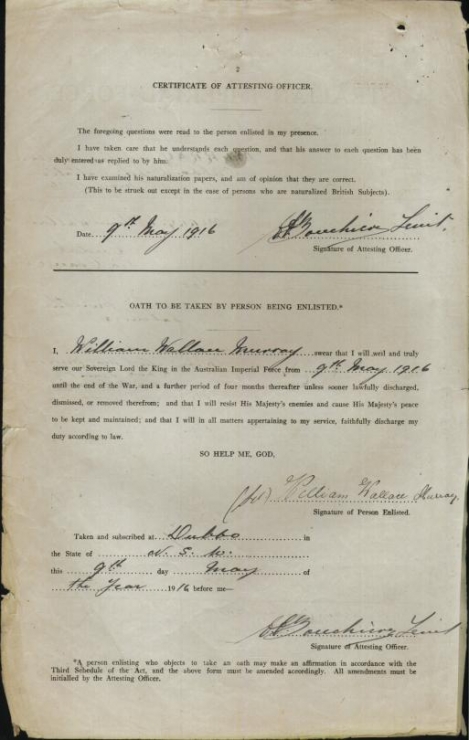 2
CERTIFICATE OF ATTESTING OFFICER.
The foregoing questions were read to the person enlisted in my presence.
I have taken care that he understands each question, and that his answer to each question has been
duly entered as replied to by him.
I have examined his naturalization papers, and am of opinion that they are correct.
(This to be struck out except in the case of persons who are naturalized British Subjects).
Date 9th May 1916
Lieut.
Signature of Attesting Officer.
OATH TO BE TAKEN BY PERSON BEING ENLISTED.*
I, William Wallace Murray swear that I will well and truly
serve our Sovereign Lord the King in the Australian Imperial Force from 9th May 1916
until the end of the War, and a further period of four months thereafter unless sooner lawfully discharged,
dismissed, or removed therefrom; and that I will resist His Majesty's enemies and cause His Majesty's peace
to be kept and maintained; and that I will in all matters appertaining to my service, faithfully discharge my
duty according to law.
SO HELP ME, GOD.
William Wallace Murray
Signature of Person Enlisted.
Taken and subscribed at Dubbo in
the State of N. S. W.
this 9th day May of
the Year 1916 before me—
Lieut
Signature of Attesting Officer.
*A person enlisting who objects to take an oath may make an affirmation in accordance with the
Third Schedule of the Act, and the above form must be amended accordingly. All amendments must be
initialled by the Attesting Officer.